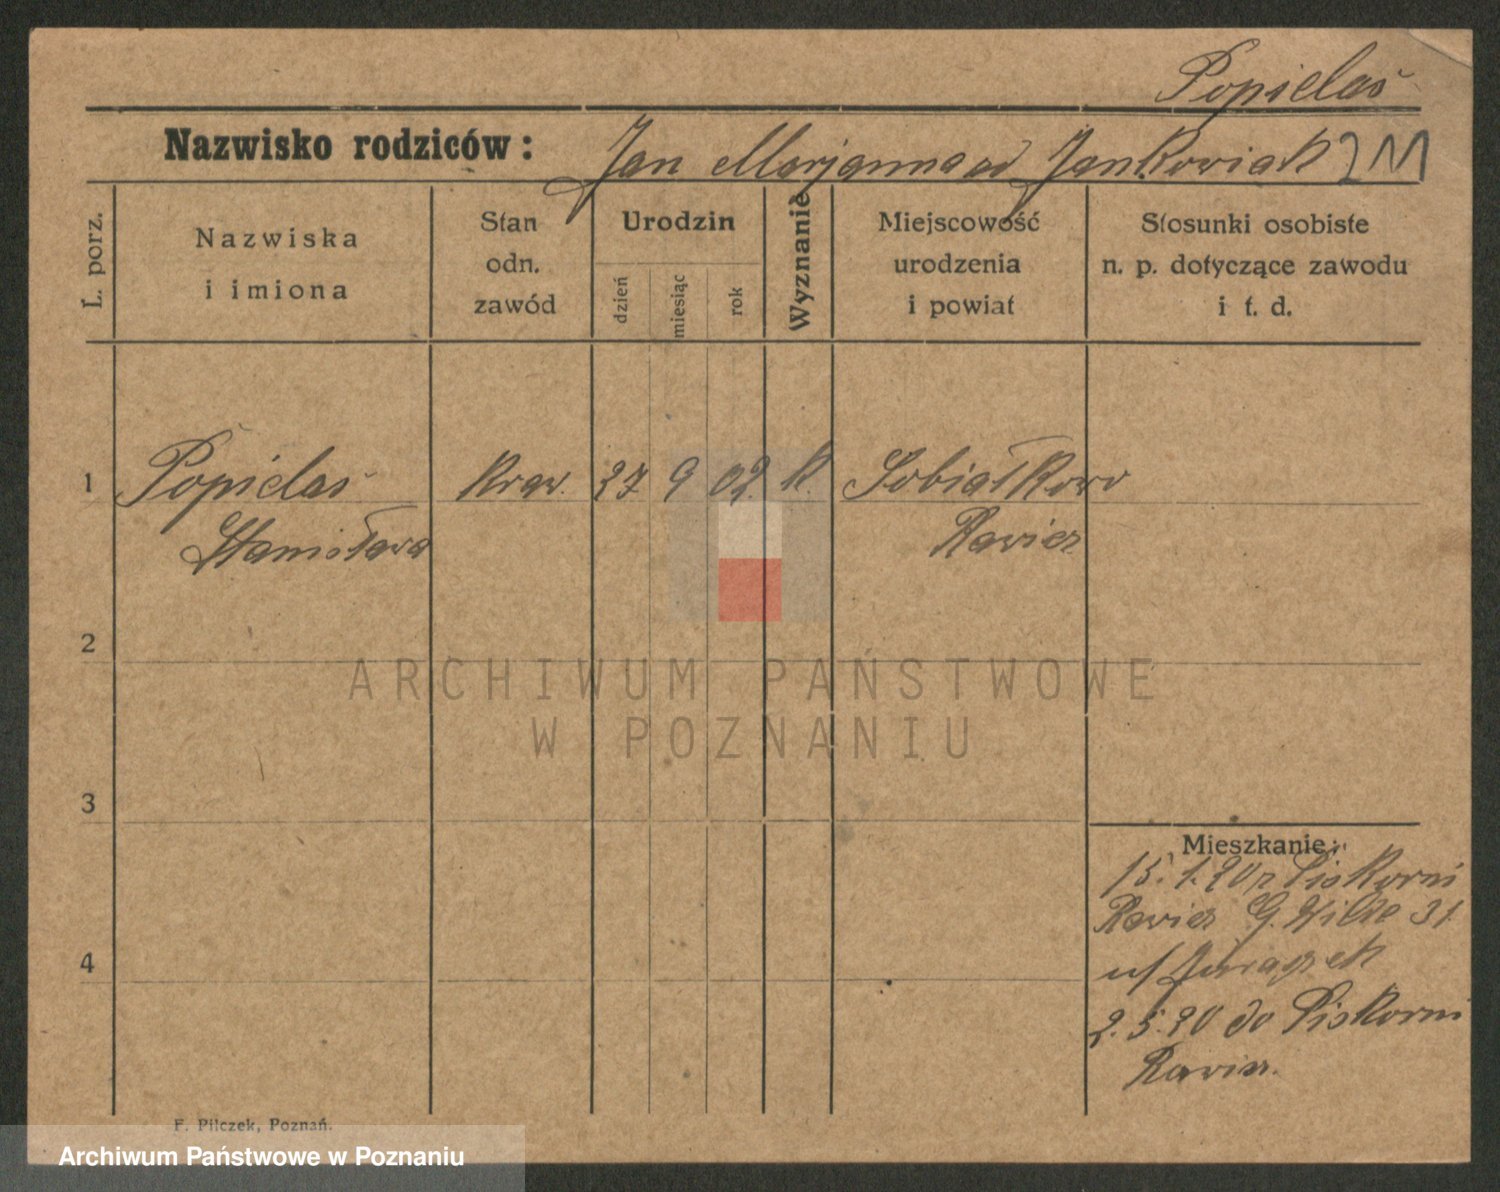 Popielaś
Nazwisko rodziców: Jan Marjanna od Jankowiak
L. porz.
Nazwiska
i imiona
Stan
odn.
zawód
Urodzin
dzień
miesiąc
rok
Wyznanie
Miejscowość
urodzenia
i powiat
Stosunki osobiste
n. p. dotyczące zawodu
i t. d.
1 Popielaś Kraw. 27 9 02. k. Sobiałkowo
Stanisława Rawicz
2
ARCHIWUM PAŃSTWOWE
W POZNANIU
3
Mieszkanie:
15.1.20 z Piskorni
Rawicz G. Wilde 31
u/
4
2.5.20 do Piskorni
Rawicz.
F. Pilczek, Poznań.
Archiwum Państwowe w Poznaniu